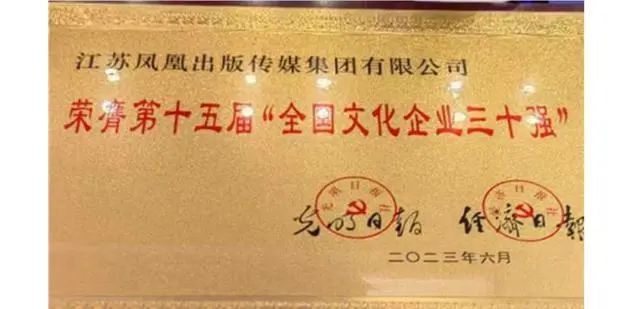 江苏凤凰出版传媒集团有限公司
荣膺第十五届“全国文化企业三十强”
光明日报社 经济日报社
光明日报 经济日报
二〇二三年六月